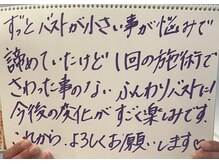 ずっとバストが小さい事が悩みで
諦めていたけど1回の施術で
さわった事のない ふんわりバストに!
今後の変化がすごく楽しみです
これから、よろしくお願いします